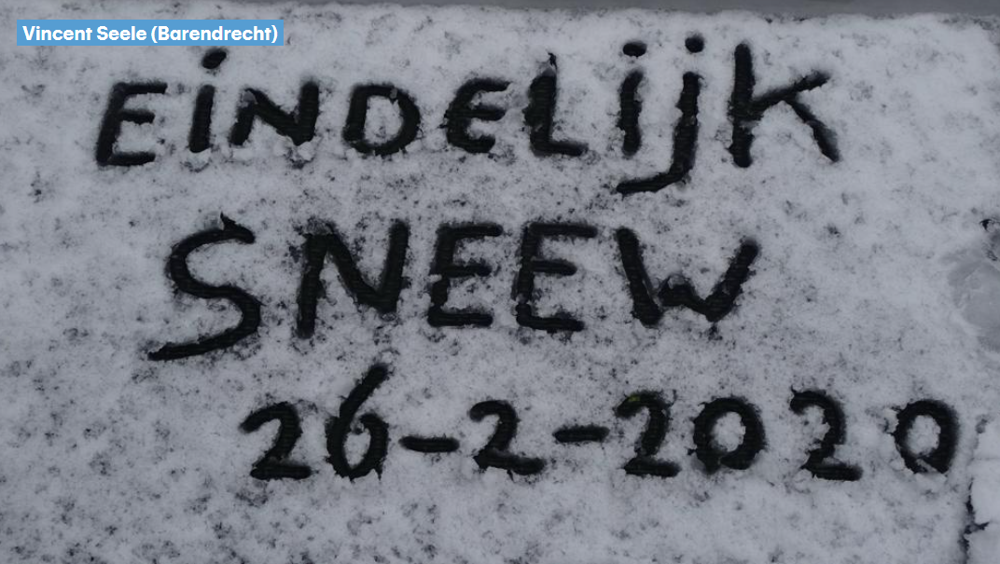 Vincent Seele (Barendrecht)
EINDELIJK
SNEEW
26-2-2020